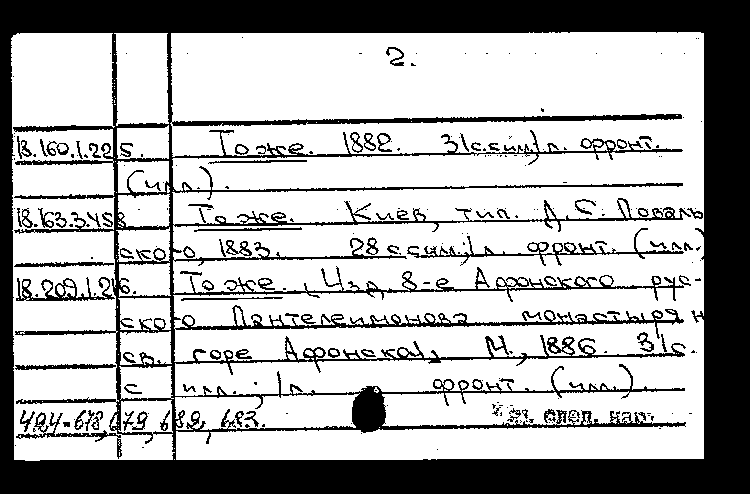 2.
18.160.1.225. То же. 1882. 31 с. с илл., 1 л. фронт.
(илл.).
18.163.3.458 То же. Киев, тип. Д. С. Поваль
ского, 1883. 28 с. с илл., 1 л. фронт. (илл.)
18.209.1.26. То же. Изд. 8-е Афонского рус-
ского Пантелеимонова монастыря н
св. горе Афонской, М., 1886. 31 с.
с илл.; 1 л. фронт. (илл.).
678, 679, 682, 683.